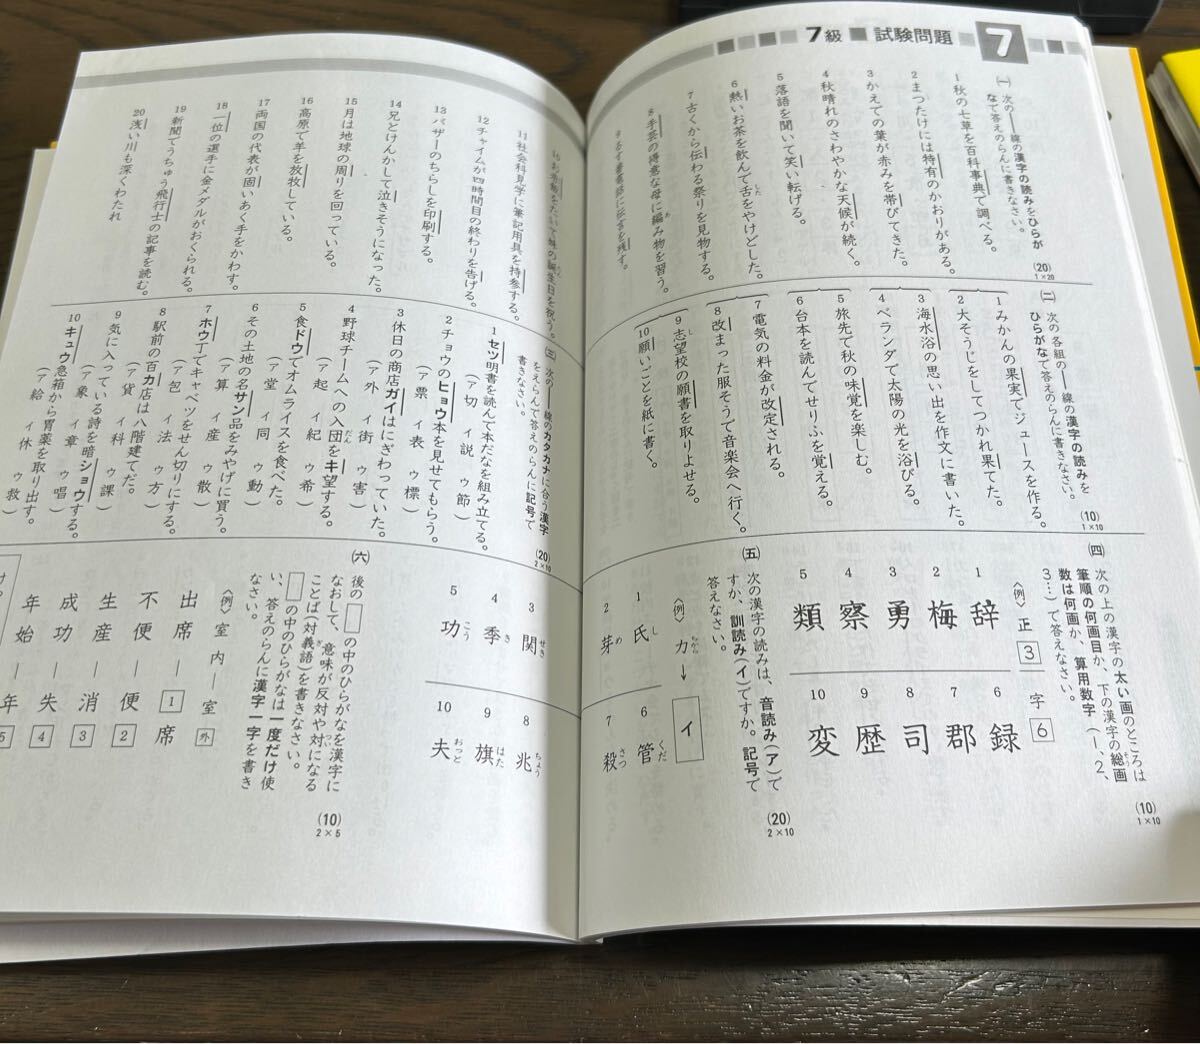 7級 試験問題 7
㈠ 次の――線の漢字の読みをひらが
なで答えのらんに書きなさい。
(20)
1×20
1 秋の七草を百科事典で調べる。
2 まつたけには特有のかおりがある。
3 かえでの葉が赤みを帯びてきた。
4 秋晴れのさわやかな天候が続く。
5 落語を聞いて笑い転げる。
6 熱いお茶を飲んで舌をやけどした。
した
7 古くから伝わる祭りを見物する。
8 手芸の得意な母に編み物を習う。
あ
9 るす番電話に伝言を残す。
㈡ 次の各組の――線の漢字の読みを
ひらがなで答えのらんに書きなさい。
(10)
1×10
1 みかんの果実でジュースを作る。
2 大そうじをしてつかれ果てた。
3 海水浴の思い出を作文に書いた。
4 ベランダで太陽の光を浴びる。
5 旅先で秋の味覚を楽しむ。
6 台本を読んでせりふを覚える。
7 電気の料金が改定される。
8 改まった服そうで音楽会へ行く。
9 志望校の願書を取りよせる。
し
10 願いごとを紙に書く。
㈣ 次の上の漢字の太い画のところは
筆順の何画目か、下の漢字の総画
数は何画か、算用数字(1、2、
3…)で答えなさい。
(10)
1×10
〈例〉 正 3 字 6
1 辞
2 梅
3 勇
4 察
5 類
6 録
7 郡
8 司
9 歴
10 変
㈤ 次の漢字の読みは、音読み(ア)で
すか、訓読み(イ)ですか。記号で
答えなさい。
(20)
2×10
〈例〉 力 ちから → イ
1 氏 し
2 芽 め
6 管 くだ
7 殺 さつ
11 社会科見学に筆記用具を持参する。
12 チャイムが四時間目の終わりを告げる。
13 バザーのちらしを印刷する。
14 兄とけんかして泣きそうになった。
15 月は地球の周りを回っている。
16 高原で羊を放牧している。
17 両国の代表が固いあく手をかわす。
18 一位の選手に金メダルがおくられる。
19 新聞でうちゅう飛行士の記事を読む。
20 浅い川も深くわたれ
㈢ 次の――線のカタカナに合う漢字
をえらんで答えのらんに記号で
書きなさい。
(20)
2×10
1 セツ明書を読んで本だなを組み立てる。
(ア 切 イ 説 ゥ 節)
2 チョウのヒョウ本を見せてもらう。
(ア 票 イ 表 ゥ 標)
3 休日の商店ガイはにぎわっていた。
(ア 外 イ 街 ゥ 害)
4 野球チームへの入団をキ望する。
だん
(ア 起 イ 紀 ゥ 希)
5 食ドウでオムライスを食べた。
(ア 堂 イ 同 ゥ 動)
6 その土地の名サン品をみやげに買う。
(ア 算 イ 産 ゥ 散)
7 ホウ丁でキャベツをせん切りにする。
(ア 包 イ 法 ゥ 方)
8 駅前の百カ店は八階建てだ。
(ア 貨 イ 科 ゥ 課)
9 気に入っている詩を暗ショウする。
(ア 象 イ 章 ゥ 唱)
10 キュウ急箱から胃薬を取り出す。
(ア 給 イ 休 ゥ 救)
3 関 せき
4 季 き
5 功 こう
8 兆 ちょう
9 旗 はた
10 夫 おっと
㈥ 後の□の中のひらがなを漢字に
なおして、意味が反対や対になる
ことば(対義語)を書きなさい。
□の中のひらがなは一度だけ使
い、答えのらんに漢字一字を書き
なさい。
(10)
2×5
〈例〉 室内―室外
出席―1席
不便―便2
生産―消3
成功―失4
年始―年5